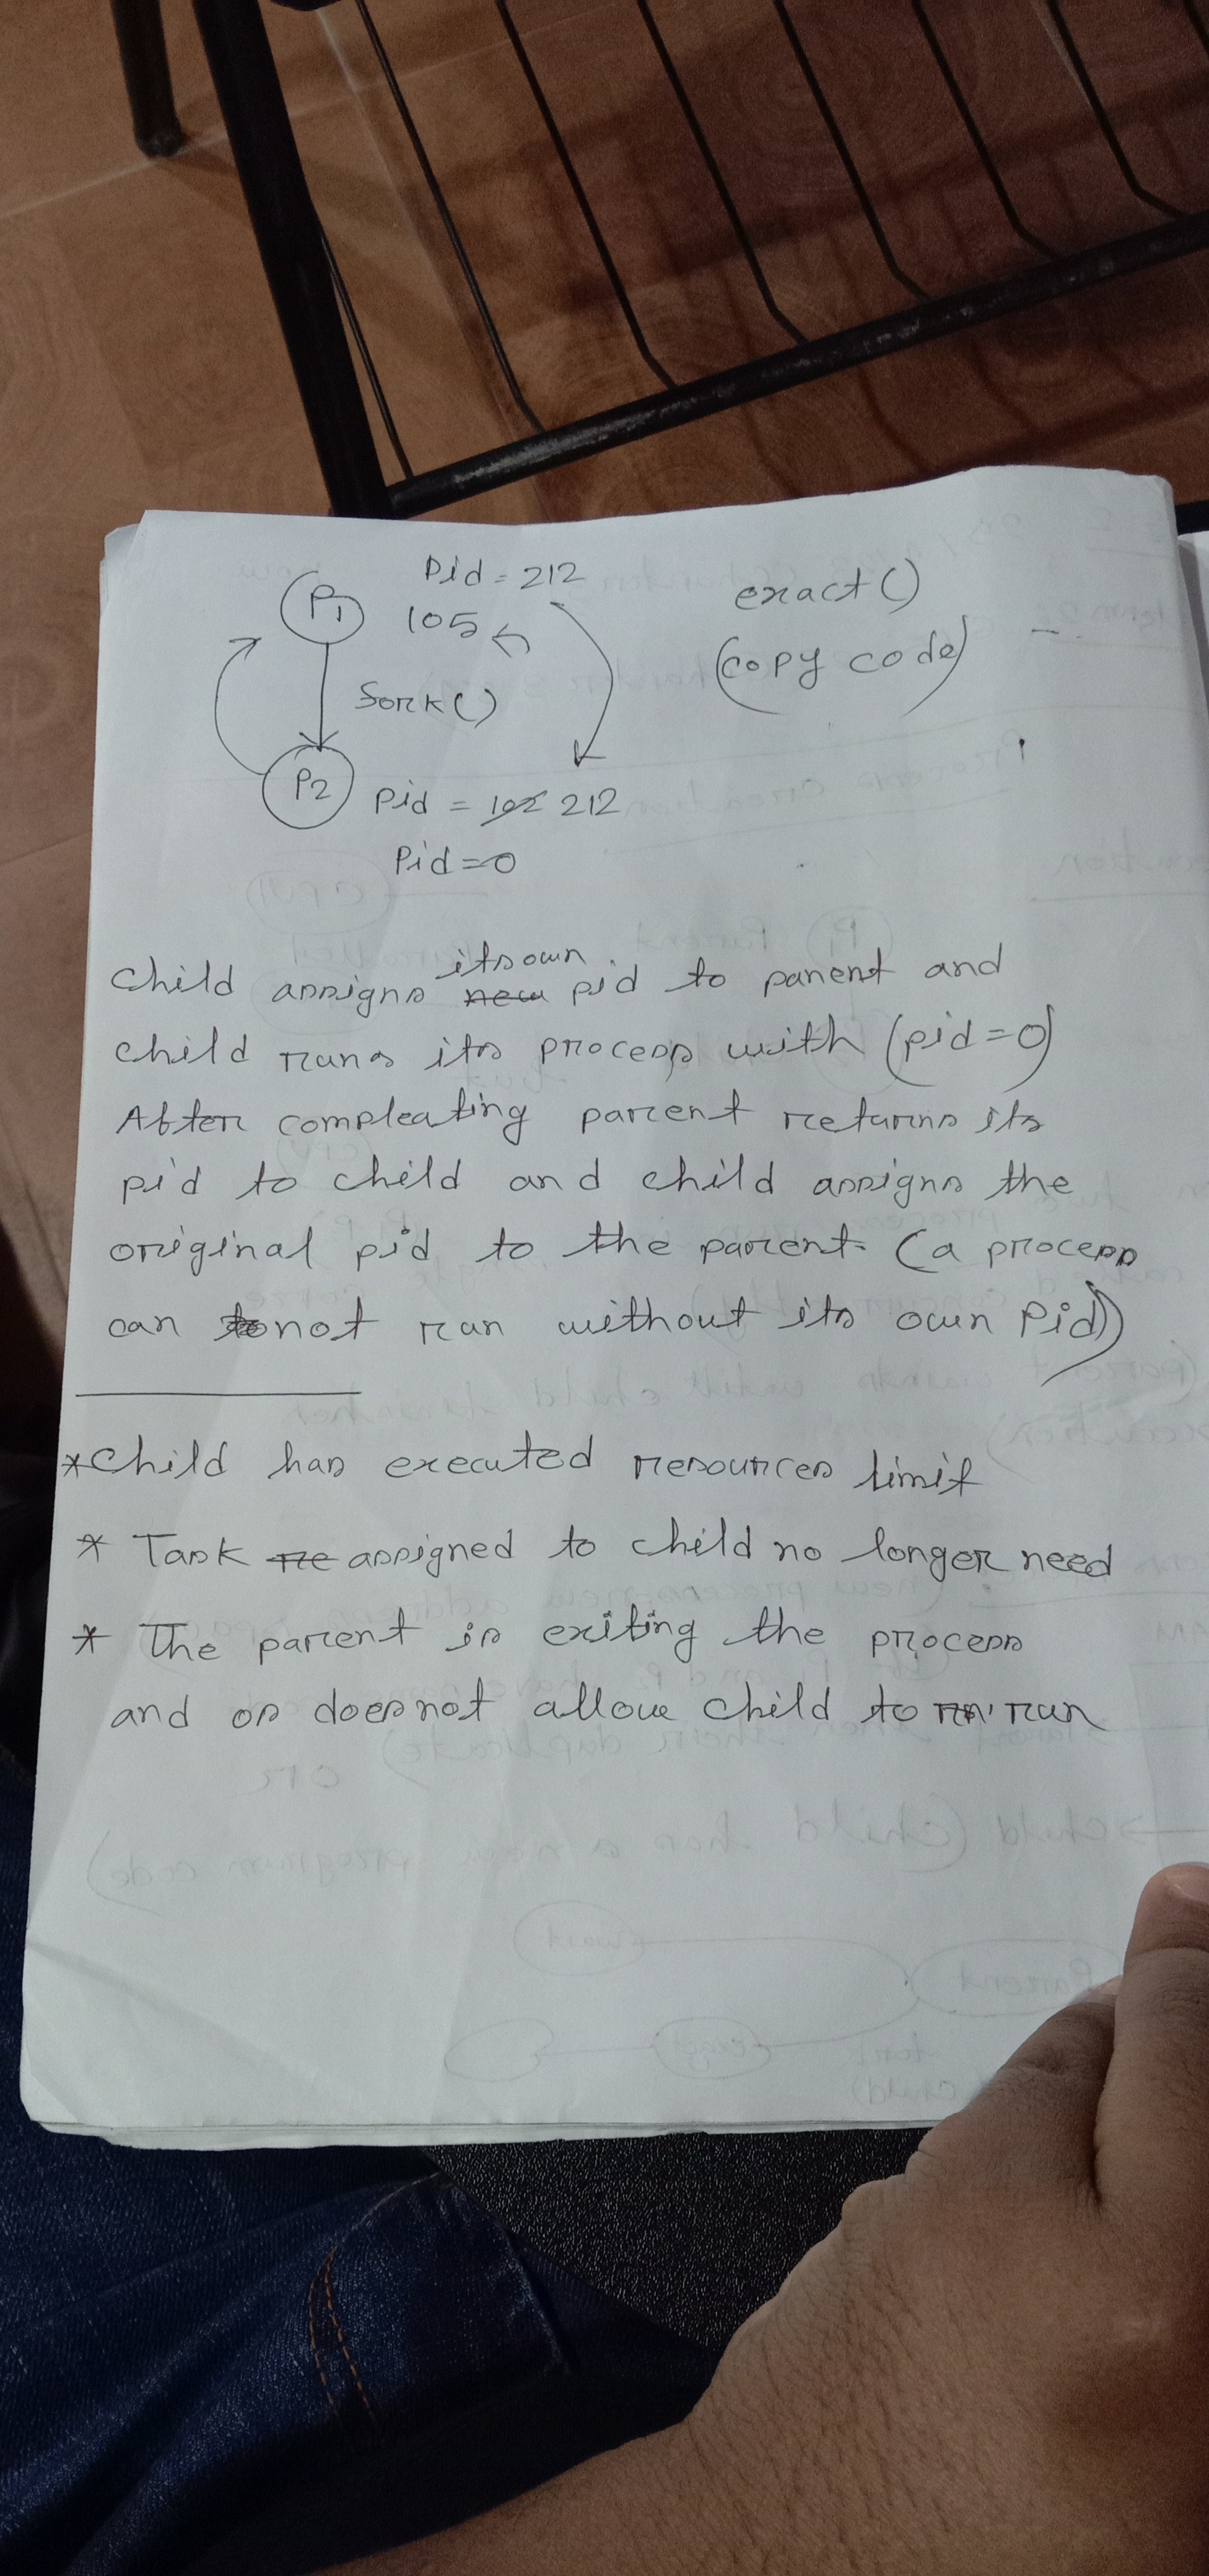 Pid = 212
P1
105
exact()
(copy code)
fork()
P2
Pid = 102 212
Pid = 0
child assigns new its own pid to parent and
child runs its process with (pid = 0)
After compleating parent returns its
pid to child and child assigns the
original pid to the parent. (a process
can to not run without its own Pid)
*Child has executed resources limit
* Task re assigned to child no longer need
* The parent is exiting the process
and os does not allow child to run